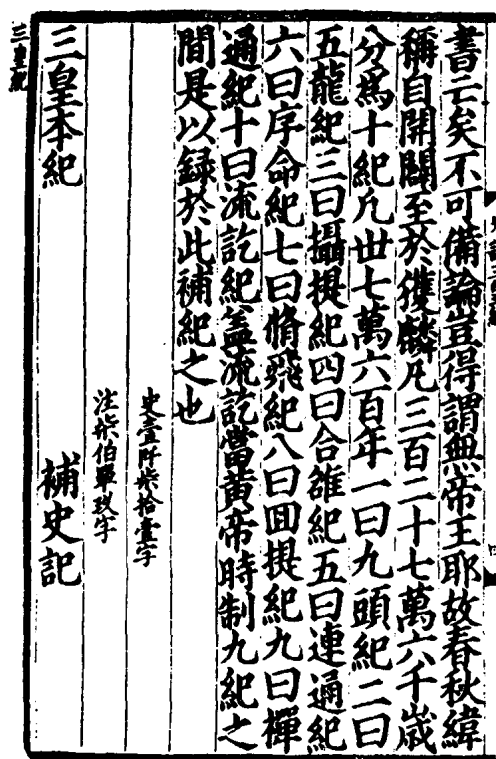 書云矣不可備論豈得謂無帝王耶故春秋緯
稱自開闢至於獲麟凡三百二十七萬六千歲
分爲十紀凡世七萬六百年一曰九頭紀二曰
五龍紀三曰攝提紀四曰合雒紀五曰連通紀
六曰序命紀七曰脩飛紀八曰回提紀九曰禪
通紀十曰流訖紀蓋流訖當黃帝時制九紀之
間是以録於此補紀之也
史壹阡柒拾壹字
注柒伯單玖字
三皇本紀 補史記
三皇紀